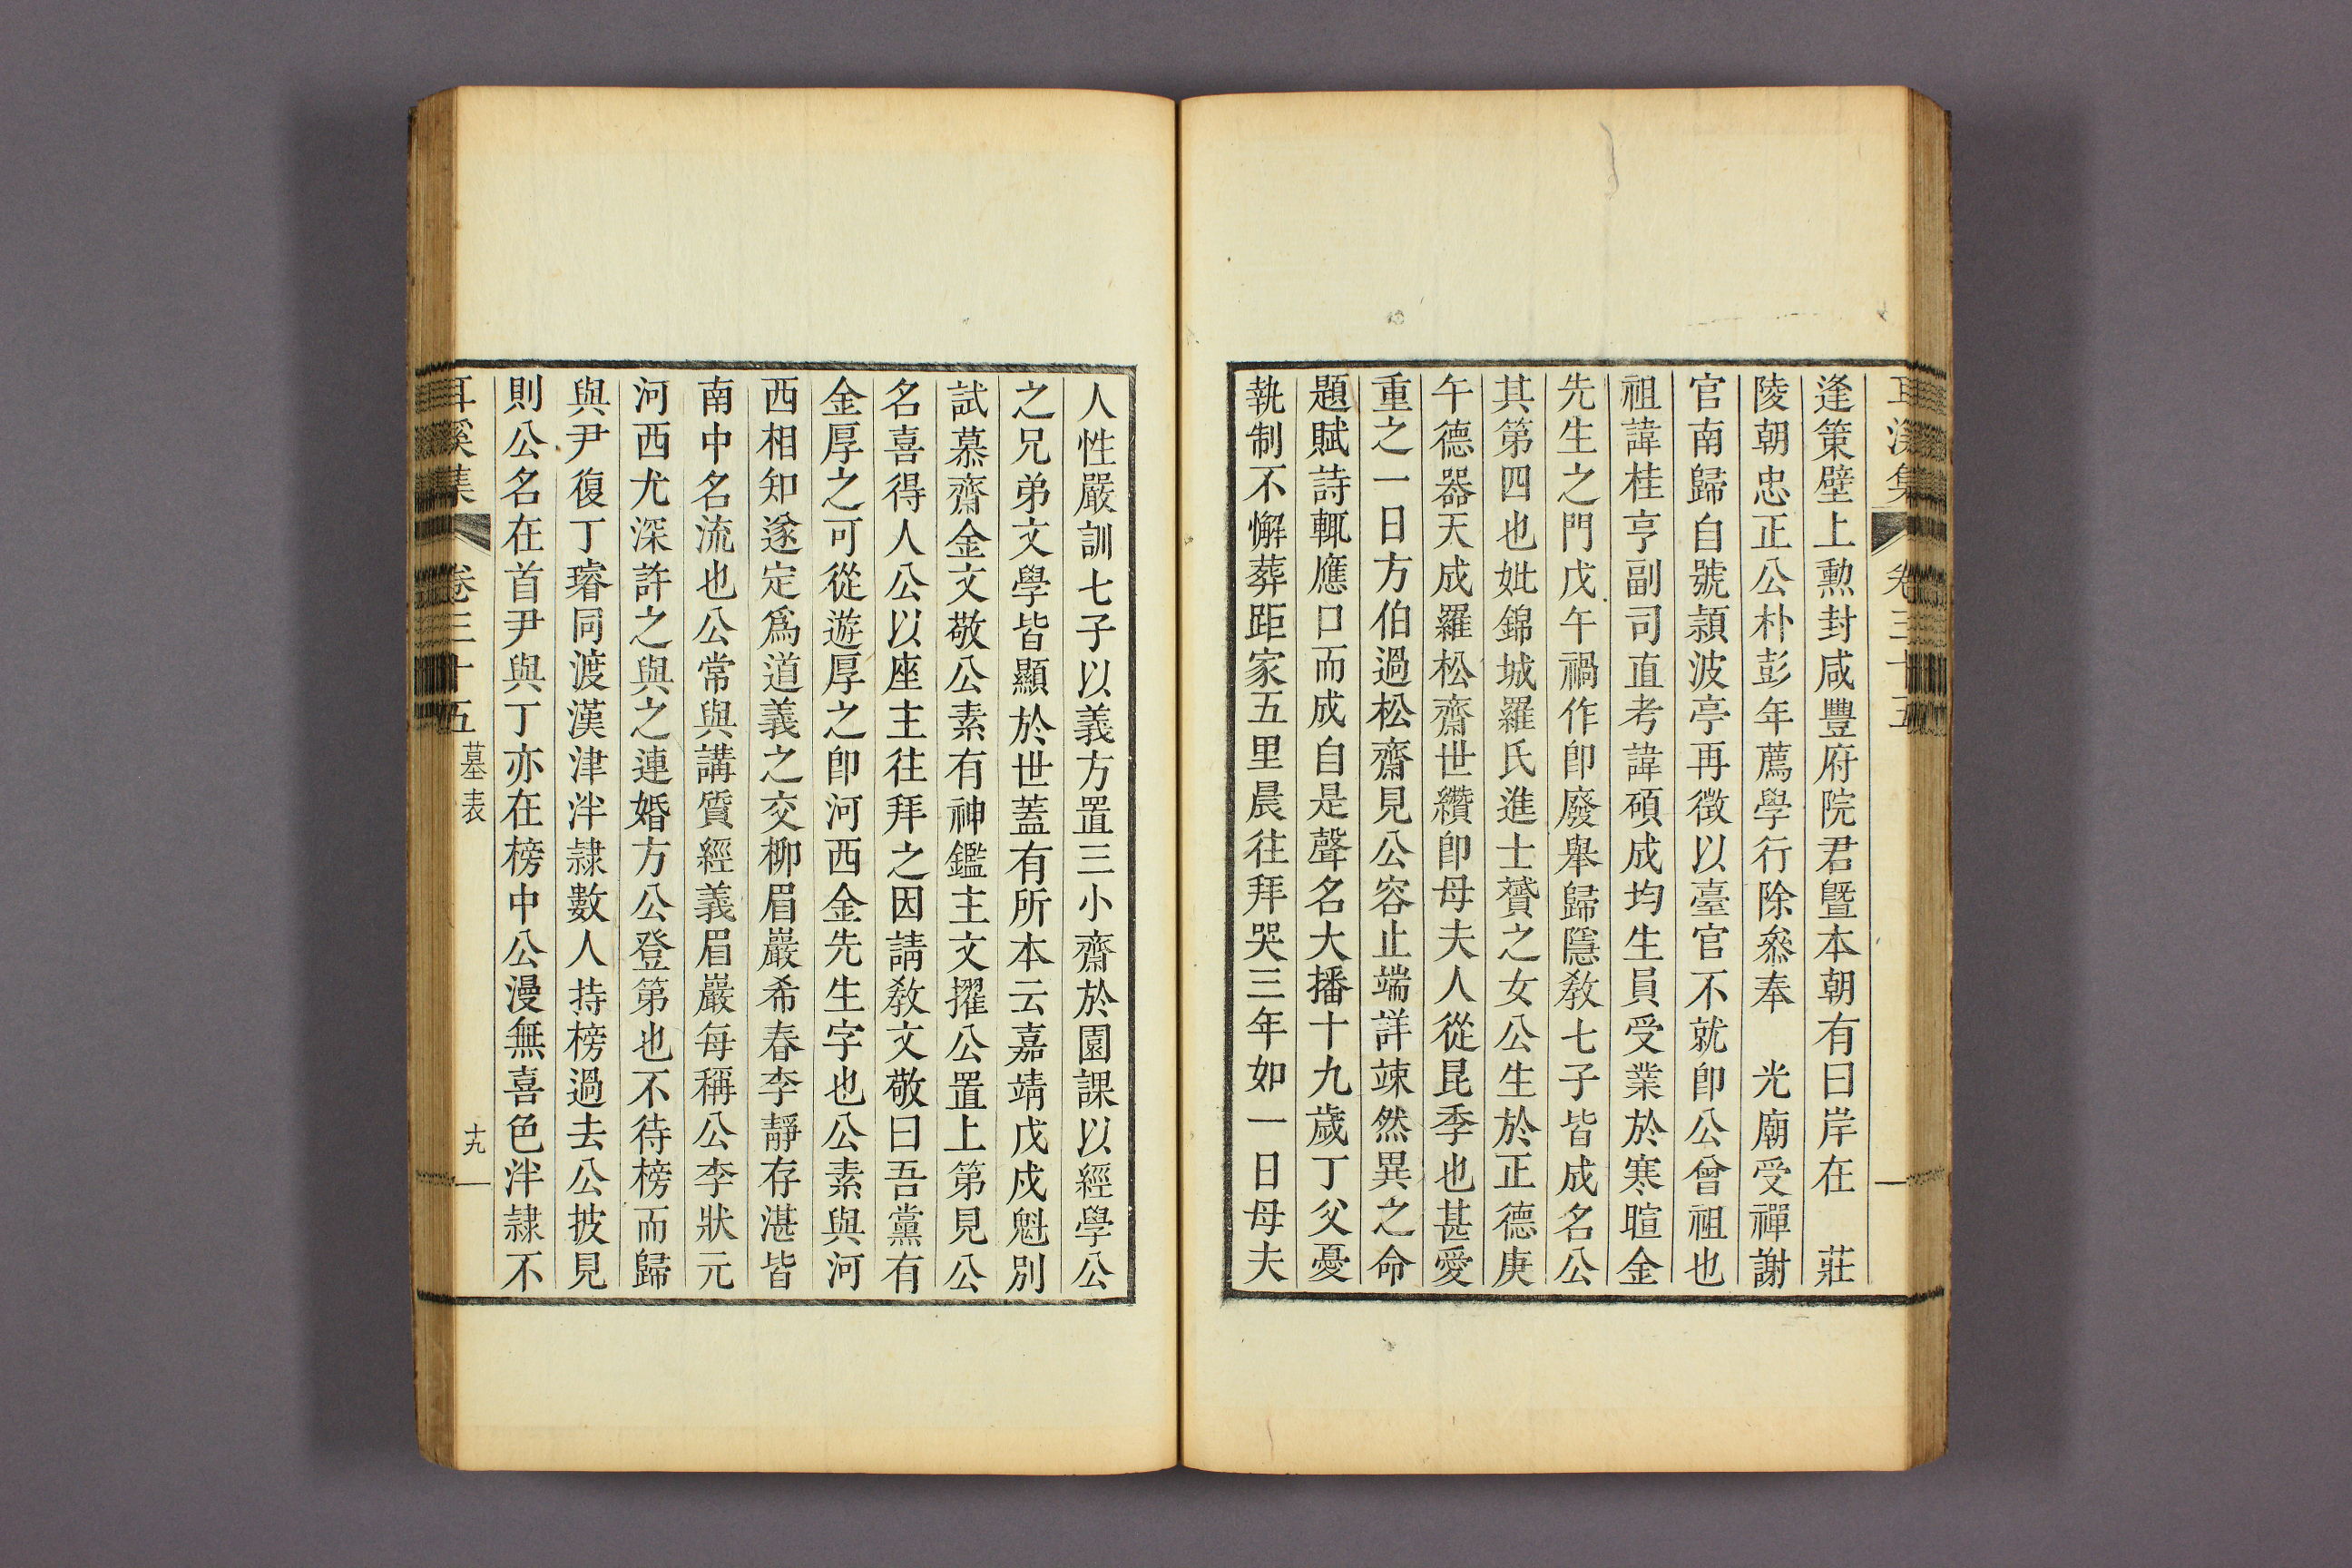 耳溪集 卷三十五
逢策壁上勳封咸豐府院君曁本朝有曰岸在 莊
陵朝忠正公朴彭年薦學行除叅奉 光廟受禪謝
官南歸自號潁波亭再徵以臺官不就卽公曾祖也
祖諱桂亨副司直考諱碩成均生員受業於寒暄金
先生之門戊午禍作卽廢舉歸隱敎七子皆成名公
其第四也妣錦城羅氏進士贇之女公生於正德庚
午德器天成羅松齋世纘卽母夫人從昆季也甚愛
重之一日方伯過松齋見公容止端詳竦然異之命
題賦詩輒應口而成自是聲名大播十九歲丁父憂
執制不懈葬距家五里晨往拜哭三年如一日母夫
人性嚴訓七子以義方置三小齋於園課以經學公
之兄弟文學皆顯於世蓋有所本云嘉靖戊戌魁別
試慕齋金文敬公素有神鑑主文擢公置上第見公
名喜得人公以座主往拜之因請敎文敬曰吾黨有
金厚之可從遊厚之卽河西金先生字也公素與河
西相知遂定爲道義之交柳眉巖希春李靜存湛皆
南中名流也公常與講質經義眉巖每稱公李狀元
河西尤深許之與之連婚方公登第也不待榜而歸
與尹復丁㻽同渡漢津泮隷數人持榜過去公披見
則公名在首尹與丁亦在榜中公漫無喜色泮隷不
耳溪集 卷三十五 墓表 十九